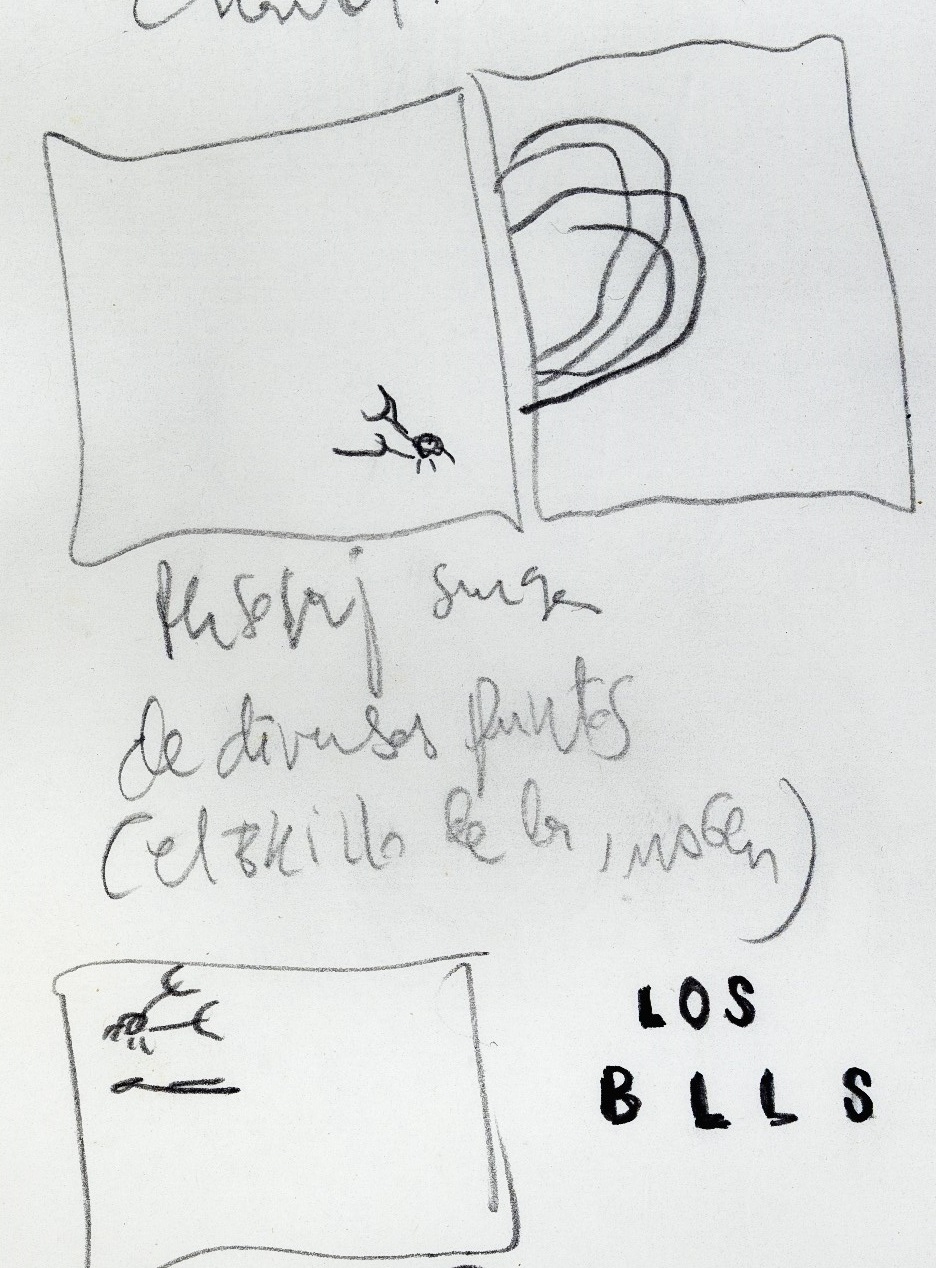 surge
de diversos puntos
(el brillo de la imagen)
LOS
B L L S